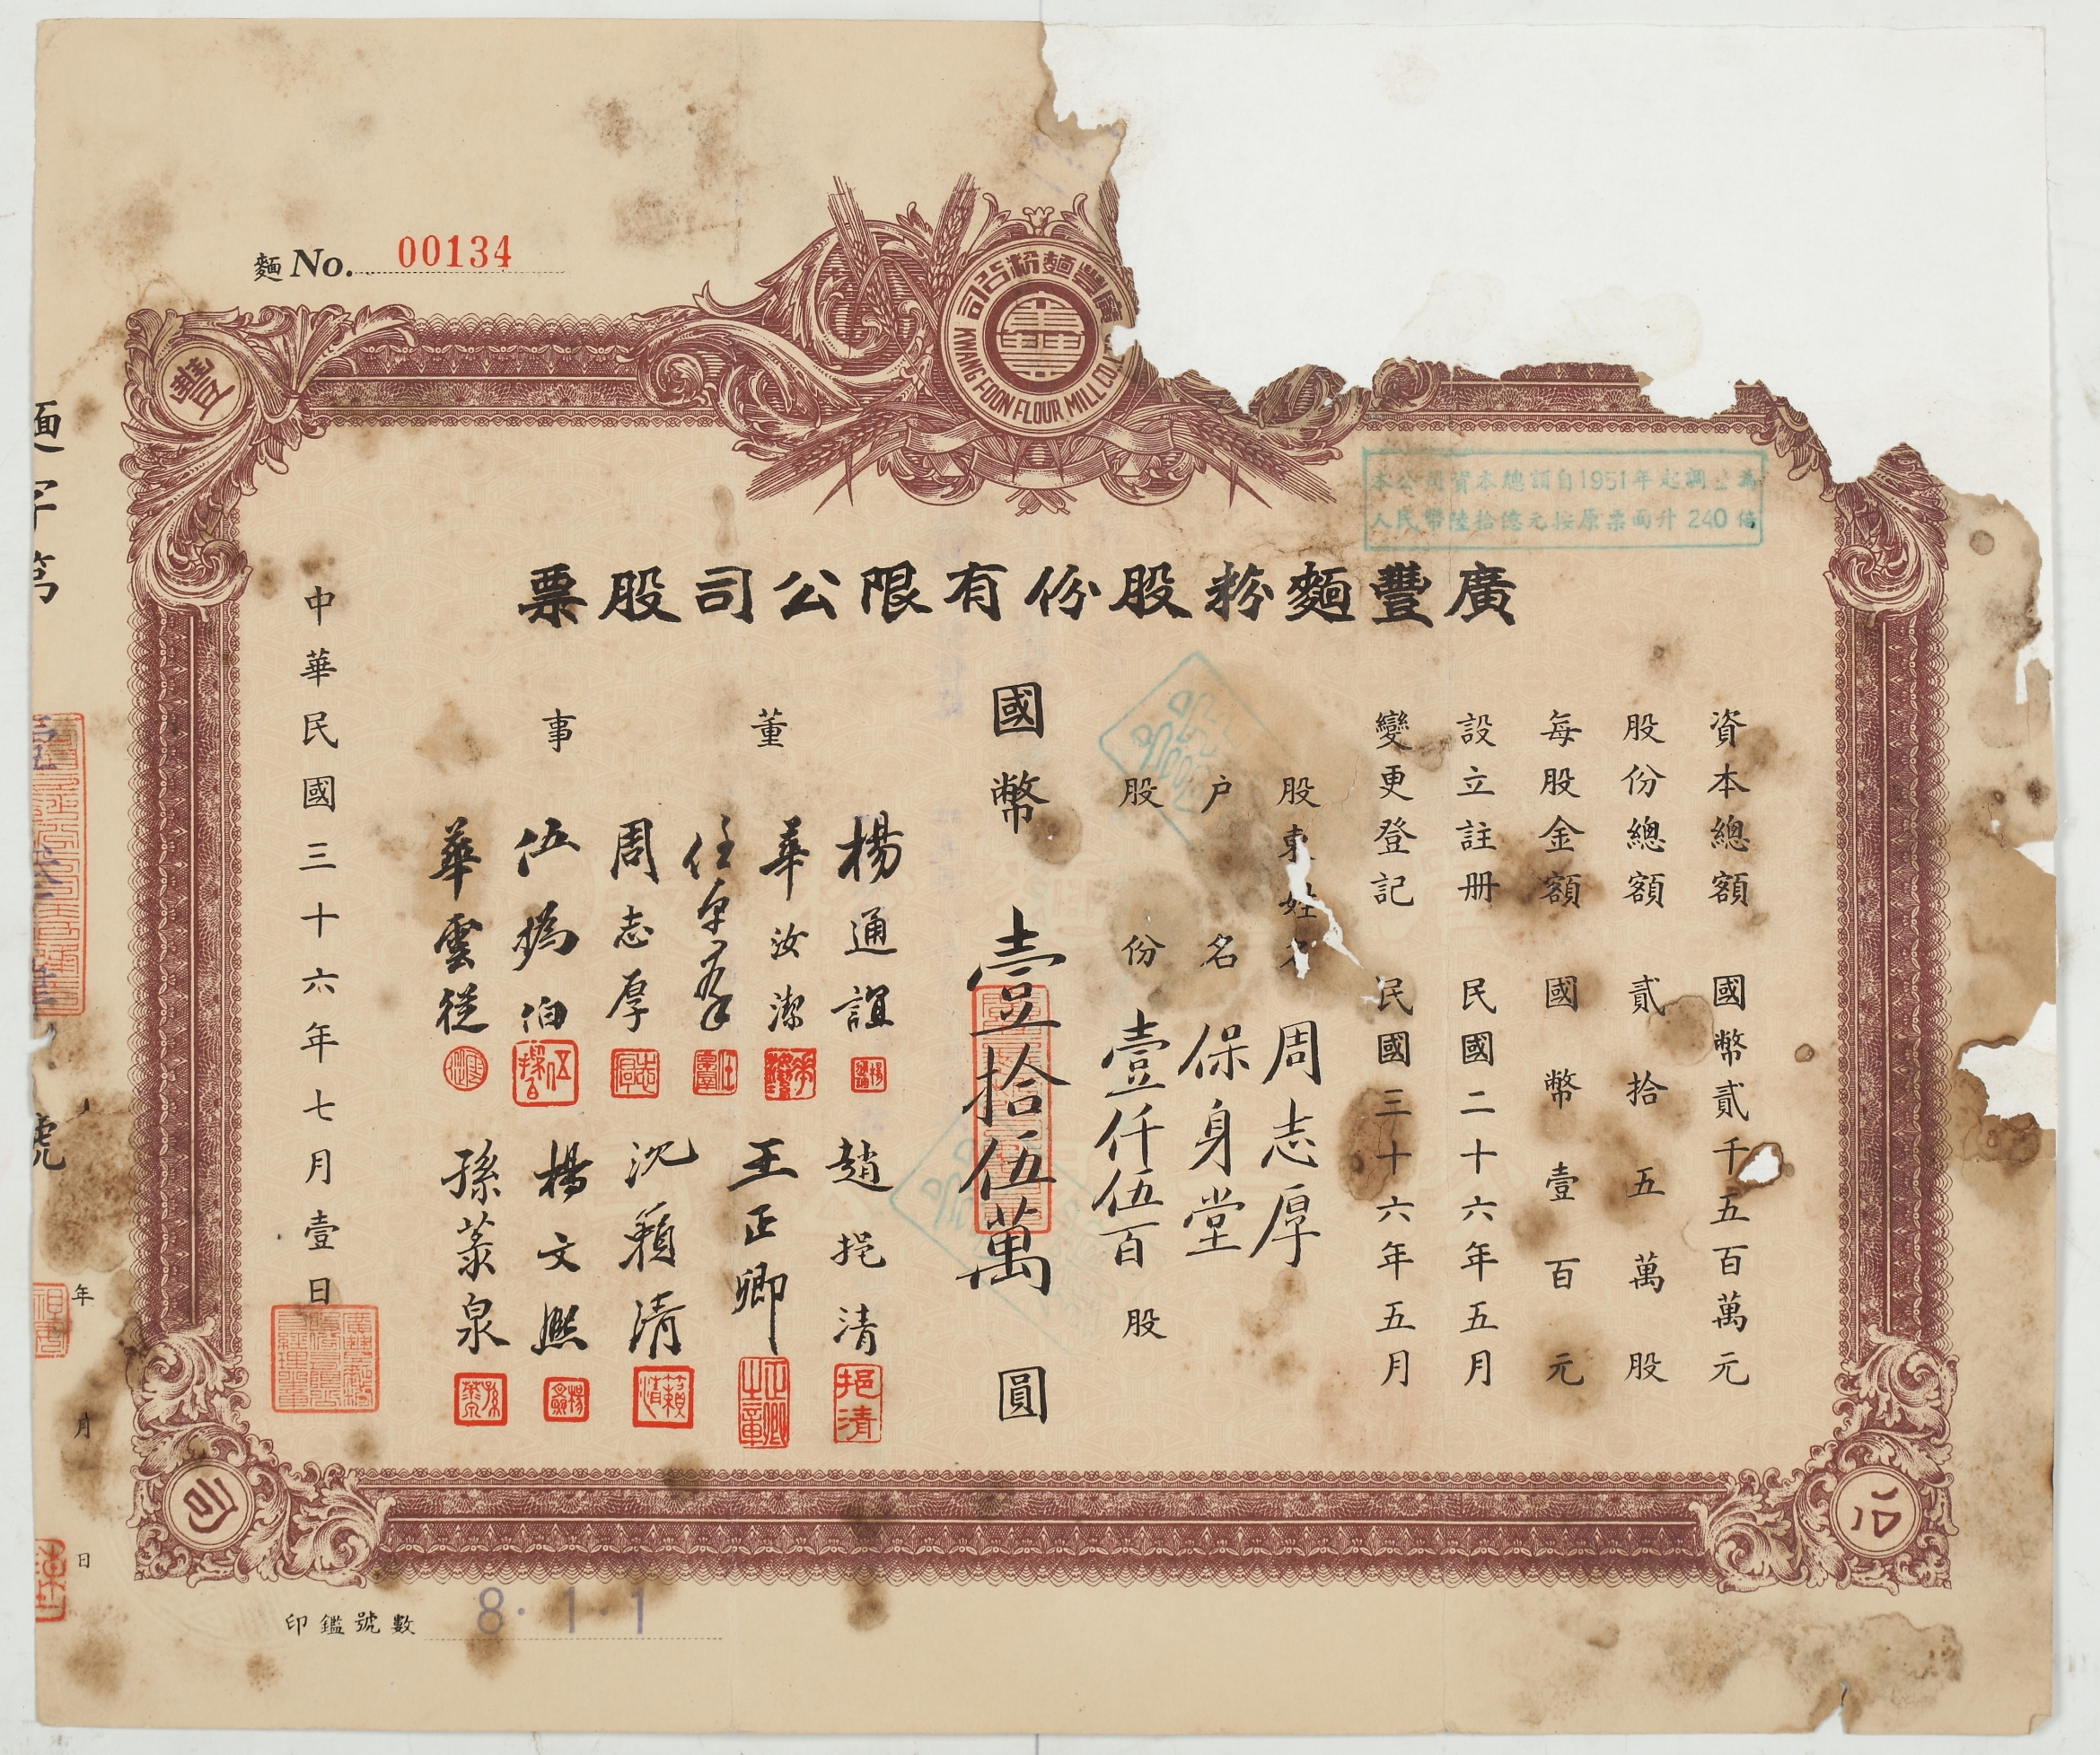 麵 No. 00134
廣豐麵粉公司
KWANG FOON FLOUR MILL CO.
豐
本公司資本總額自1951年起調整為
人民幣陸拾億元按原票面升240倍
廣豐麵粉股份有限公司股票
資本總額 國幣貳千五百萬元
股份總額 貳拾五萬股
每股金額 國幣壹百元
設立註册 民國二十六年五月
變更登記 民國三十六年五月
股東姓名 周志厚
户名 保身堂
股份 壹仟伍百股
國幣 壹拾伍萬圓
董事
楊通誼
華汝潔
任卓羣
周志厚
伍撝伯
華雲從
趙挹清
王正卿
沈籟清
楊文熙
孫蒸泉
中華民國三十六年七月壹日
麵字第 號
年 月 日
公
司
印鑑號數 8·1·1